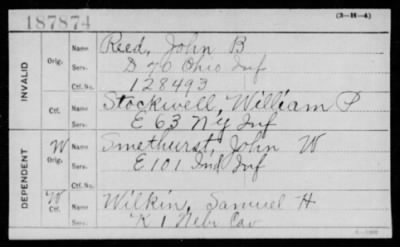 187874
(3-H-4)
INVALID
Orig.
Name Reed, John B
Serv. D 76 Ohio Inf
Ctf. No. 128493
Ctf.
Name Stockwell, William P
Serv. E 63 N Y Inf
DEPENDENT
W Orig.
Name Smethurst, John W
Serv. E 101 Ind Inf
Ctf. No.
W Ctf.
Name Wilkin, Samuel H
Serv. K 1 Nebr Cav